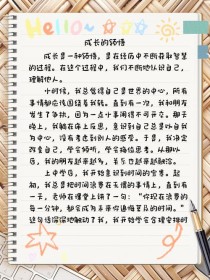 Hello~
成长的领悟
成长是一种领悟，是在经历中不断获取智慧
的过程。在这个过程中，我们不断地认识自己，
理解他人。
小时候，我总觉得自己是世界的中心，所有
事情都应该围绕着我转。直到有一次，我和朋友
发生了争执，因为一点小事闹得不可开交。那天
晚上，我躺在床上反思，意识到自己总是以自我
为中心，没有考虑到别人的感受。于是，我决定
改变自己，学会倾听，学会换位思考。从那以
后，我的朋友越来越多，关系也越来越融洽。
上中学后，我开始意识到时间的宝贵。起
初，我总是把时间浪费在无谓的事情上，直到有
一天，老师在课堂上说了一句：“你现在浪费的
每一分钟，都会成为未来你追悔莫及的时间。”
这句话深深地触动了我，我开始学会合理安排时